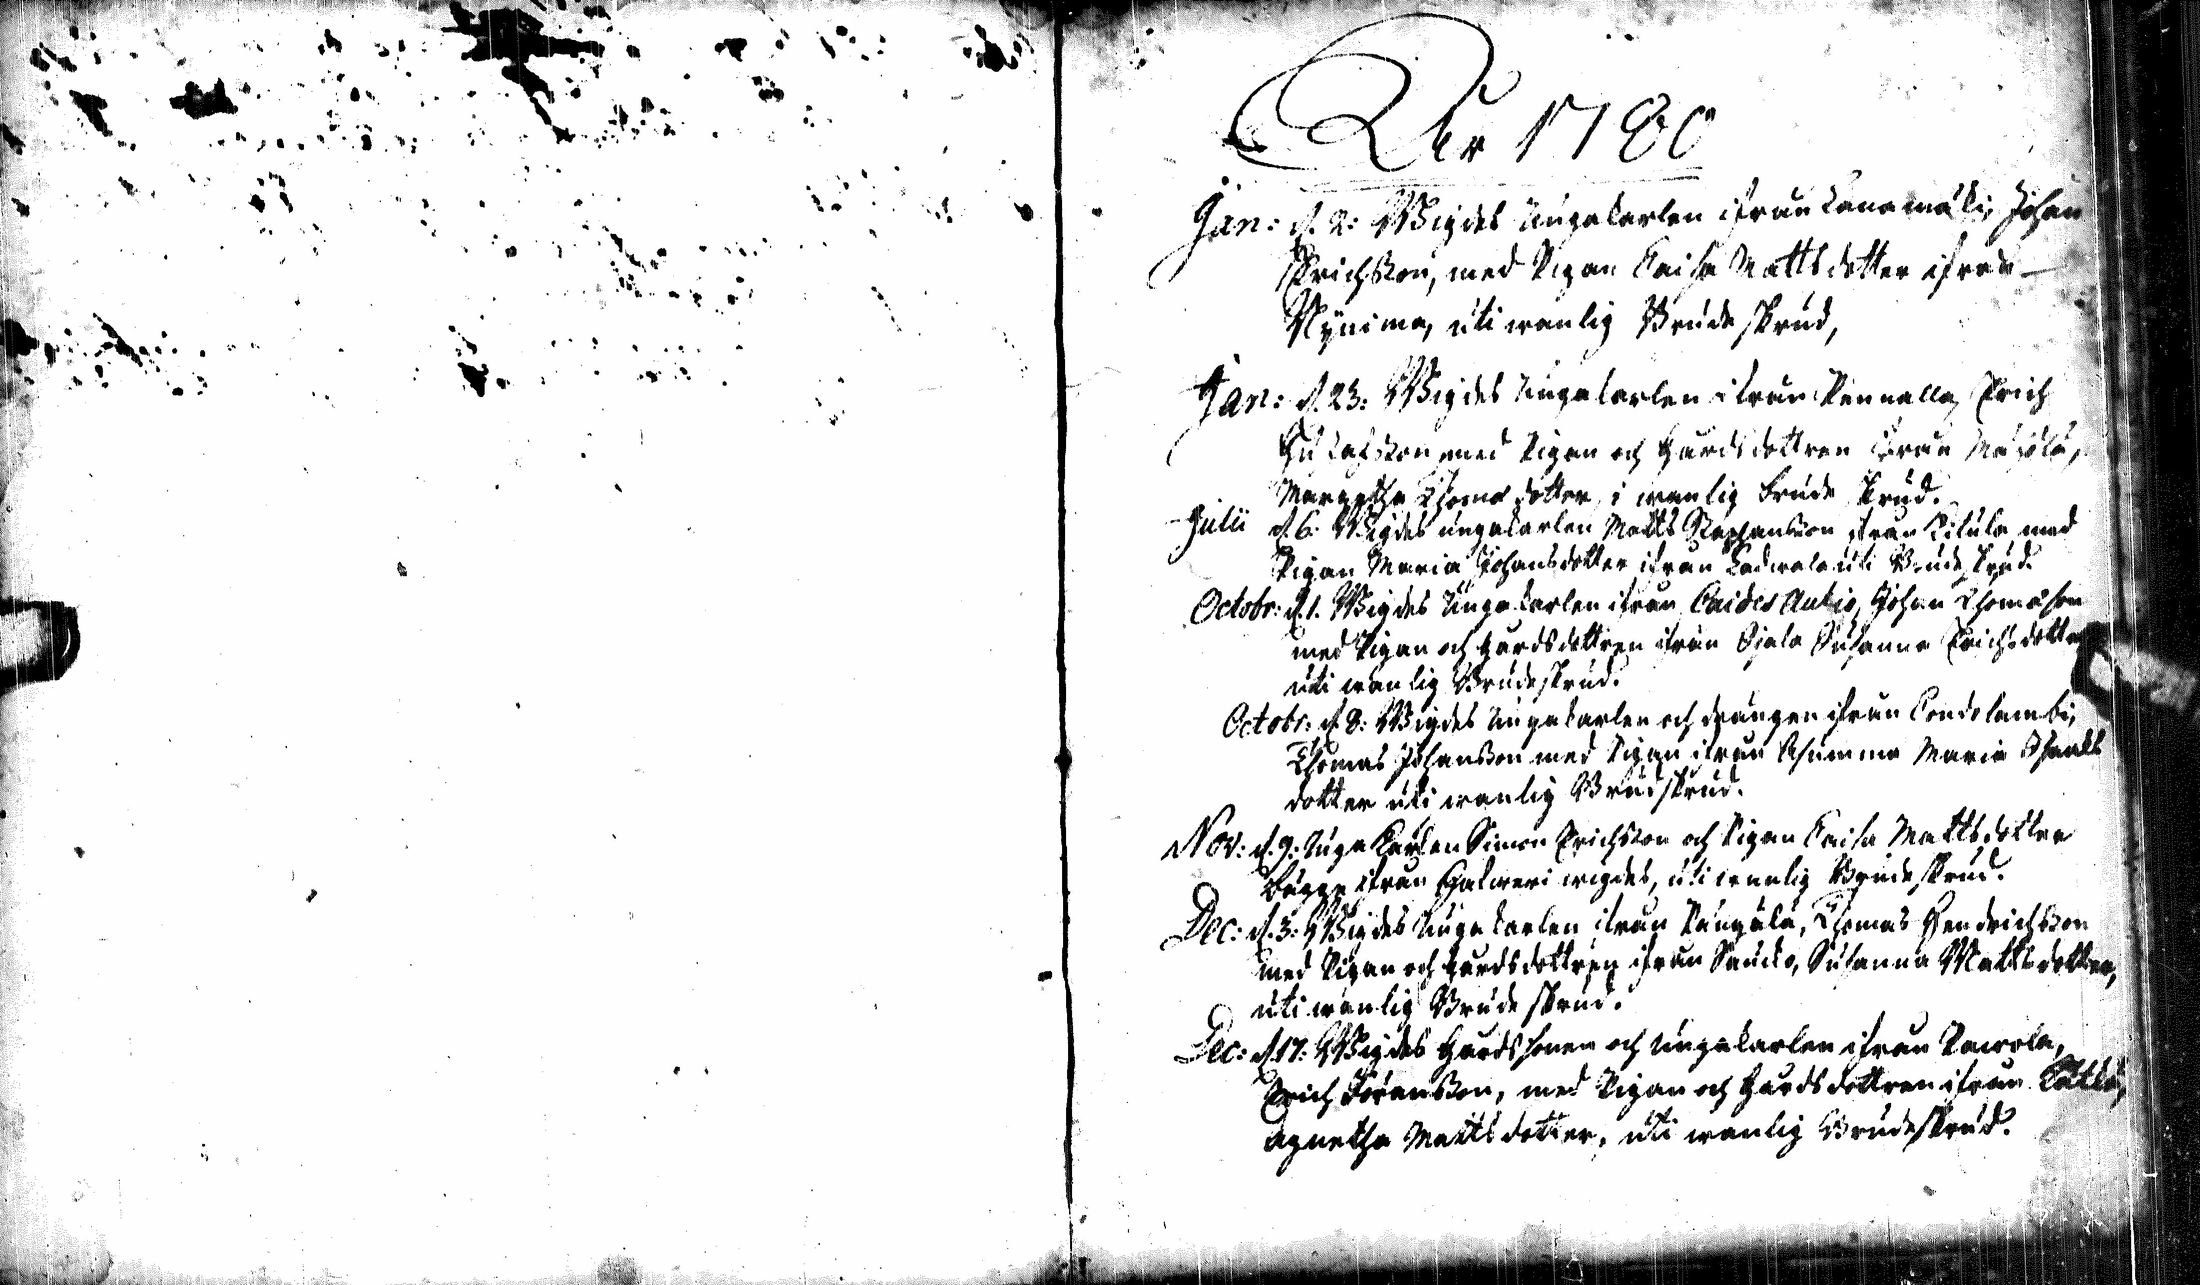 Åhr 1780
Jan: d. 2: Wigdes Ungakarlen ifrån Lanamäki, Johan
Erichsson, med Pigan Caisa Mattsdotter ifrån
Nynima, uti wanlig Brudeskrud,
Jan: d. 23: Wigdes Ungakarlen ifrån Pennalla, Erich
Gustafsson med Pigan och Gårdsdottren ifrån
Margetha Thomædotter, i wanlig brude skrud.
Julii d. 6: Wigdes ungakarlen Matts Staphansson ifrån med
Pigan Maria Johansdotter ifrån uti Brudeskrud.
Octobr: d. 1. Wigdes Ungakarlen ifrån Johan Thomæson
med Pigan och gårdsdottren ifrån Ojala Susanna Erichsdotter
uti wanlig Brudeskrud.
Octobr: d. 8: Wigdes Ungakarlen och drängen ifrån
Thomas Johansson med Pigan ifrån Maria
dotter uti wanlig Brudskrud.
Nov: d. 9: Ungakarlen Simon Erichsson och Pigan Caisa Mattsdotter
bägge ifrån wigdes, uti wanlig Brudeskrud.
Dec: d. 3: Wigdes Ungakarlen ifrån Thomas Hendrichsson
med Pigan och gårdsdottren ifrån Saucko, Susanna Mattsdotter,
uti wanlig Brude skrud.
Dec: d. 17: Wigdes Gårdssonen och Ungakarlen ifrån
Erich Göransson, med Pigan och Gårdsdottren ifrån
Agnetha Mattsdotter, uti wanlig Brudeskrud.